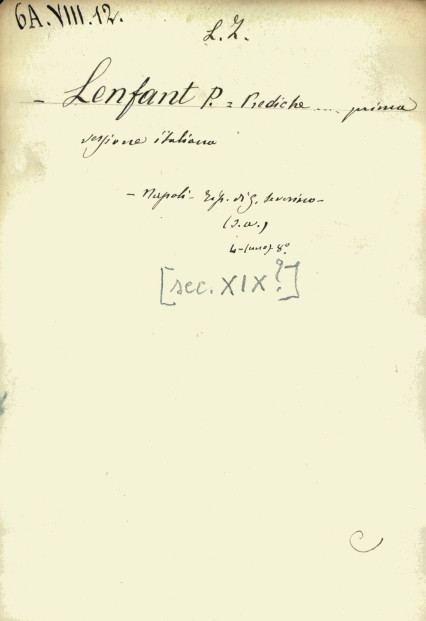 6A.VIII.12.
L. Z.
– Lenfant P. = Prediche .... prima
versione italiana
– Napoli – Tip. di G. Severino –
(s.a.)
4–(uno) 8º
[sec. XIX?]